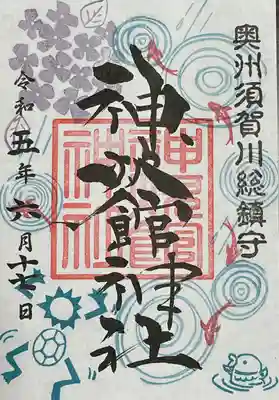 奥州須賀川総鎮守
神炊館神社
令和五年六月十七日